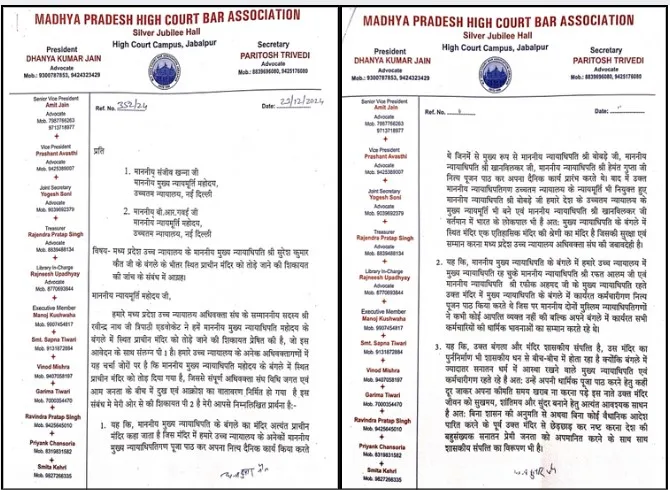 MADHYA PRADESH HIGH COURT BAR ASSOCIATION
Silver Jubilee Hall
High Court Campus, Jabalpur
President
DHANYA KUMAR JAIN
Advocate
Mob.: 9300787853, 9424323429
Secretary
PARITOSH TRIVEDI
Advocate
Mob.: 8839696080, 9425176080
Ref. No. 352/24
Date: 23/12/2024
Senior Vice President
Amit Jain
Advocate
Mob. 7987766263
9713718977
Vice President
Prashant Avasthi
Advocate
Mob. 9425389007
Joint Secretary
Yogesh Soni
Advocate
Mob. 9039692379
Treasurer
Rajendra Pratap Singh
Advocate
Mob. 8839488134
Library In-Charge
Rajneesh Upadhyay
Advocate
Mob. 8770693844
Executive Member
Manoj Kushwaha
Mob. 9907454817
Smt. Sapna Tiwari
Mob. 9131872884
Vinod Mishra
Mob. 9407058197
Garima Tiwari
Mob. 7000354470
Ravindra Pratap Singh
Mob. 9425645010
Priyank Chansoria
Mob. 8319831582
Smita Kehri
Mob. 9827298335
प्रति
1. माननीय संजीव खन्ना जी
माननीय मुख्य न्यायमूर्ति महोदय,
उच्चतम न्यायालय, नई दिल्ली
2. माननीय बी.आर.गवई जी
माननीय न्यायमूर्ति महोदय,
उच्चतम न्यायालय, नई दिल्ली
विषय- मध्य प्रदेश उच्च न्यायालय के माननीय मुख्य न्यायाधिपति श्री सुरेश कुमार
कैत जी के बंगले के भीतर स्थित प्राचीन मंदिर को तोड़े जाने की शिकायत
की जांच के संबंध में आग्रह।
माननीय मुख्य न्यायाधिपति महोदय जी,
हमारे मध्य प्रदेश उच्च न्यायालय अधिवक्ता संघ के सम्माननीय सदस्य श्री
रवीन्द्र नाथ जी त्रिपाठी एडवोकेट ने हमें माननीय मुख्य न्यायाधिपति महोदय के
बंगले में स्थित प्राचीन मंदिर को तोड़े जाने की शिकायत प्रेषित की है, जो इस
आवेदन के साथ संलग्न पी 1 है। हमारे उच्च न्यायालय के अनेक अधिवक्तागणों में
यह चर्चा जोरों पर है कि माननीय मुख्य न्यायाधिपति महोदय के बंगले में स्थित
प्राचीन मंदिर को तोड़ दिया गया है, जिससे संपूर्ण अधिवक्ता संघ विधि जगत एवं
आम जनता के बीच में दुख एवं आक्रोश का वातावरण निर्मित हो गया है। इस
संबंध में मेरी ओर से की शिकायत पी 2 है मेरी आपसे निम्नलिखित प्रार्थना है:-
1. यह कि, माननीय मुख्य न्यायाधिपति के बंगला का मंदिर अत्यंत प्राचीन
मंदिर कहा जाता है जिस मंदिर में हमारे उच्च न्यायालय के अनेकों माननीय
मुख्य न्यायाधिपतिगण पूजा पाठ कर अपना दैनिक कार्य किया करते
MADHYA PRADESH HIGH COURT BAR ASSOCIATION
Silver Jubilee Hall
High Court Campus, Jabalpur
President
DHANYA KUMAR JAIN
Advocate
Mob.: 9300787853, 9424323429
Secretary
PARITOSH TRIVEDI
Advocate
Mob.: 8839696080, 9425176080
Ref. No.
Date:
Senior Vice President
Amit Jain
Advocate
Mob. 7987766263
9713718977
Vice President
Prashant Avasthi
Advocate
Mob. 9425389007
Joint Secretary
Yogesh Soni
Advocate
Mob. 9039692379
Treasurer
Rajendra Pratap Singh
Advocate
Mob. 8839488134
Library In-Charge
Rajneesh Upadhyay
Advocate
Mob. 8770693844
Executive Member
Manoj Kushwaha
Mob. 9907454817
Smt. Sapna Tiwari
Mob. 9131872884
Vinod Mishra
Mob. 9407058197
Garima Tiwari
Mob. 7000354470
Ravindra Pratap Singh
Mob. 9425645010
Priyank Chansoria
Mob. 8319831582
Smita Kehri
Mob. 9827298335
थे जिनमें से मुख्य रूप से माननीय न्यायाधिपति श्री बोबड़े जी, माननीय
न्यायाधिपति श्री खानविलकर जी, माननीय न्यायाधिपति श्री हेमंत गुप्ता जी
नित्य पूजन पाठ कर अपना दैनिक कार्य प्रारंभ करते थे बाद में उक्त
माननीय न्यायाधिपतिगण उच्चतम न्यायालय के न्यायमूर्ति भी नियुक्त हुए
माननीय न्यायाधिपति श्री बोबड़े जी हमारे देश के उच्चतम न्यायालय के
मुख्य न्यायमूर्ति भी बने एवं माननीय न्यायाधिपति श्री खानविलकर जी
वर्तमान में भारत के लोकपाल भी है अतः मुख्य न्यायाधिपति के बंगले में
स्थित मंदिर एक एतिहासिक मंदिर की श्रेणी का मंदिर है जिसकी सुरक्षा एवं
सम्मान करना मध्य प्रदेश उच्च न्यायालय अधिवक्ता संघ की जवाबदेही है।
2. यह कि, माननीय मुख्य न्यायाधिपति के बंगले में हमारे उच्च न्यायालय में
मुख्य न्यायाधिपति रह चुके माननीय न्यायाधिपति श्री रफत आलम जी एवं
माननीय न्यायाधिपति श्री रफीक अहमद जी के मुख्य न्यायाधिपति रहते
उक्त मंदिर में मुख्य न्यायाधिपति के बंगले में कार्यरत कर्मचारीगण नित्य
पूजन पाठ किया करते थे जिस पर माननीय दोनों मुस्लिम न्यायाधिपतिगणों
ने कभी कोई आपत्ति व्यक्त नहीं की बल्कि अपने बंगले में कार्यरत सभी
कर्मचारियों की धार्मिक भावनाओं का सम्मान करते रहे थे।
3. यह कि, उक्त बंगला और मंदिर शासकीय संपत्ति है, उस मंदिर का
पुर्ननिर्माण भी शासकीय धन से बीच-बीच में होता रहा है क्योंकि बंगले में
ज्यादातर सनातन धर्म में आस्था रखने वाले मुख्य न्यायाधिपति एवं
कर्मचारीगण रहते रहे है अतः उन्हें अपनी धार्मिक पूजा पाठ करने हेतु कहीं
दूर जाकर अपना कीमती समय खराब ना करना पड़े इस नाते उक्त मंदिर
जीवन को सुखमय, शांतिमय और सुंदर बनाने हेतु अत्यंत आवश्यक साधन
है अतः बिना शासन की अनुमति से अथवा बिना कोई वैधानिक आदेश
पारित करने के पूर्व उक्त मंदिर से छेड़छाड़ कर नष्ट करना देश की
बहुसंख्यक सनातन प्रेमी जनता को अपमानित करने के साथ साथ
शासकीय संपत्ति का विरूपण भी है।